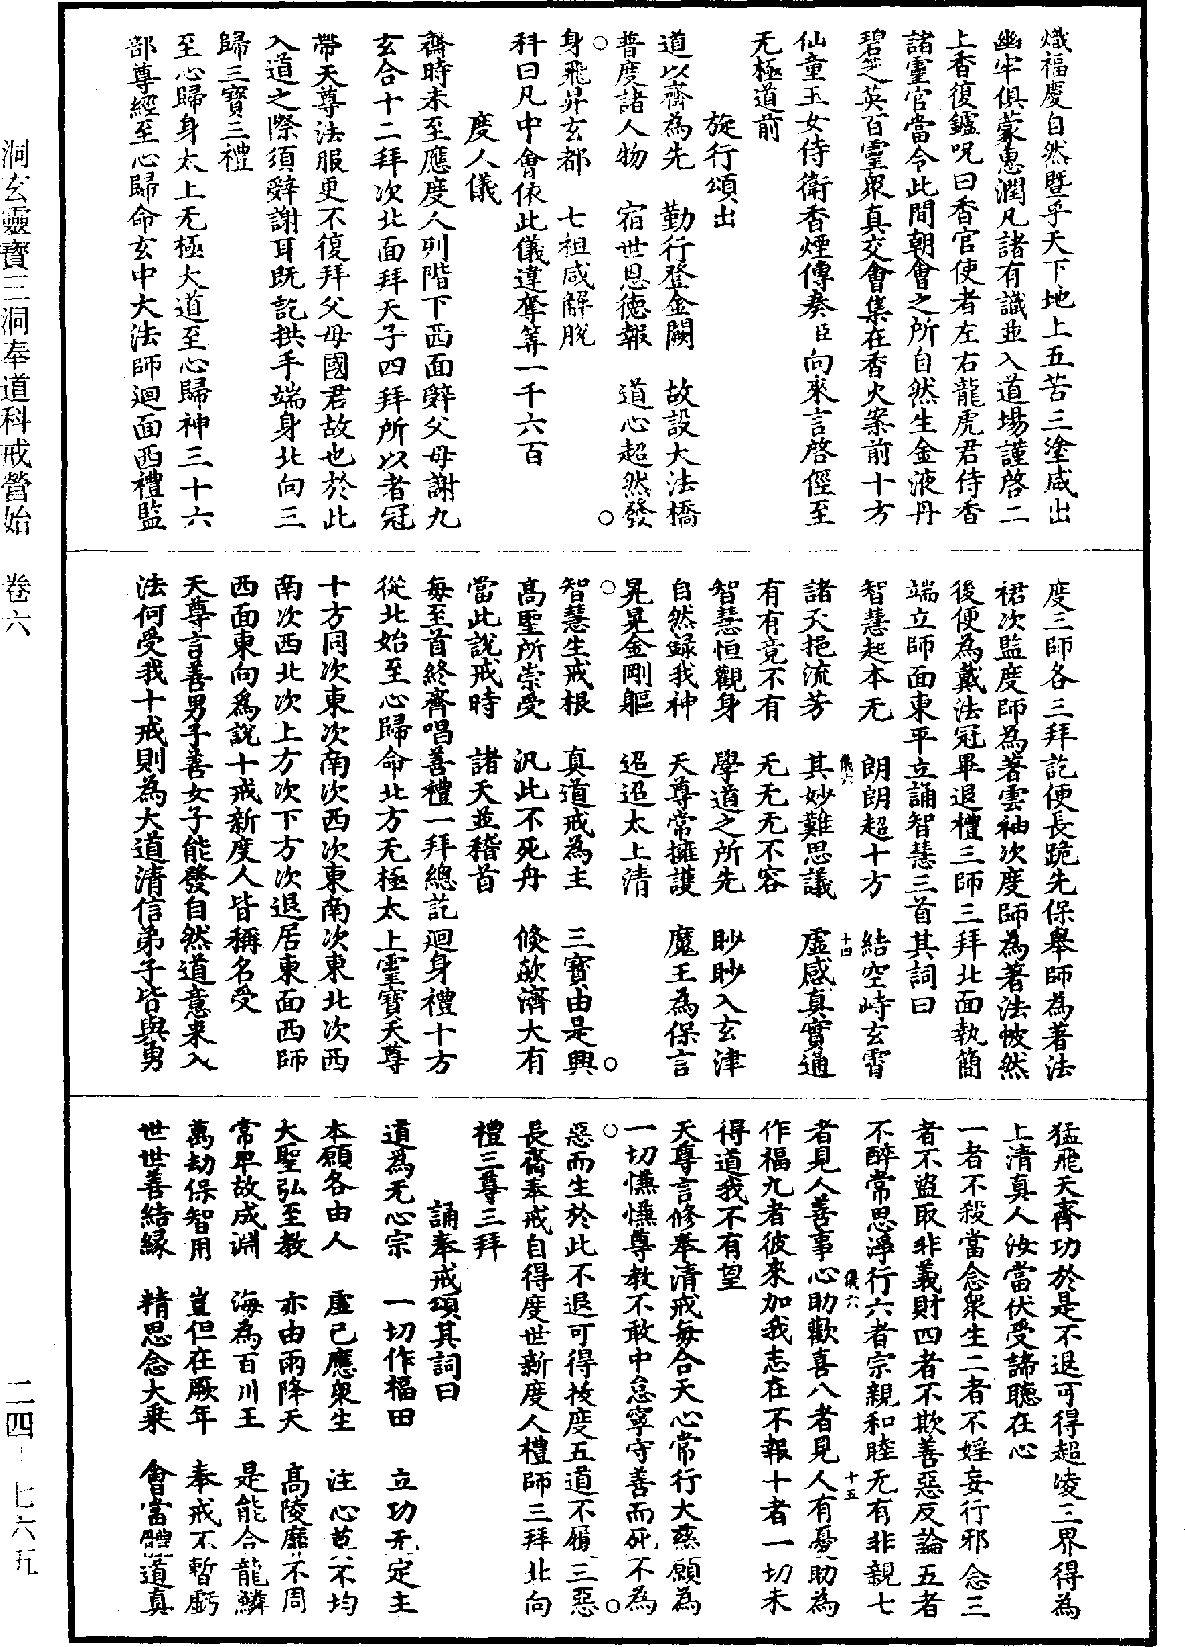 熾福慶自然暨乎天下地上五苦三塗咸出
幽牢俱蒙惠潤凡諸有識並入道場謹啓二
上香復鑪呪曰香官使者左右龍虎君侍香
諸靈官當令此間朝會之所自然生金液丹
碧芝英百靈衆真交會集在香火案前十方
仙童玉女侍衛香煙傳奏臣向來言啓徑至
无極道前
旋行頌出
道以齋為先　勤行登金闕　故設大法橋
普度諸人物　宿世恩德報　道心超然發
身飛昇玄都　七祖咸解脫
科曰凡中會依此儀違奪筭一千六百
度人儀
齋時未至應度人列階下西面辭父母謝九
玄合十二拜次北面拜天子四拜所以者冠
帶天尊法服更不復拜父母國君故也於此
入道之際須辭謝耳既訖拱手端身北向三
歸三寶三禮
至心歸身太上无極大道至心歸神三十六
部尊經至心歸命玄中大法師迴面西禮監
度三師各三拜訖便長跪先保舉師為著法
裙次監度師為著雲袖次度師為著法帔然
後便為戴法冠畢退禮三師三拜北面執簡
端立師面東平立誦智慧三首其詞曰
智慧起本无　朗朗超十方　結空峙玄霄
諸天挹流芳　其妙難思議　虛感真實通
有有竟不有　无无无不容
智慧恒觀身　學道之所先　眇眇入玄津
自然錄我神　天尊常擁護　魔王為保言
晃晃金剛軀　迢迢太上清
智慧生戒根　真道戒為主　三寶由是興
高聖所崇受　汎此不死舟　倏歘濟大有
當此說戒時　諸天並稽首
每至首終齊唱善禮一拜總訖迴身禮十方
從北始至心歸命北方无極太上靈寶天尊
十方同次東次南次西次東南次東北次西
南次西北次上方次下方次退居東面西師
西面東向為說十戒新度人皆稱名受
天尊言善男子善女子能發自然道意來入
法何受我十戒則為大道清信弟子皆與勇
猛飛天齊功於是不退可得超凌三界得為
上清真人汝當伏受諦聽在心
一者不殺當念衆生二者不婬妄行邪念三
者不盜取非義財四者不欺善惡反論五者
不醉常思淨行六者宗親和睦无有非親七
者見人善事心助歡喜八者見人有憂助為
作福九者彼來加我志在不報十者一切未
得道我不有望
天尊言修奉清戒每合天心常行大慈願為
一切慊慊尊教不敢中怠寧守善而死不為
惡而生於此不退可得拔度五道不履三惡
長齋奉戒自得度世新度人禮師三拜北向
禮三尊三拜
誦奉戒頌其詞曰
道為无心宗　一切作福田　立功无定主
本願各由人　虛己應衆生　注心莫不均
大聖弘至教　亦由雨降天　高陵靡不周
常卑故成淵　海為百川王　是能合龍鱗
萬劫保智用　豈但在厥年　奉戒不暫虧
世世善結緣　精思念大乘　會當體道真
儀六　十四
儀六　十五
洞玄靈寶三洞奉道科戒營始　卷六
二四－七六五